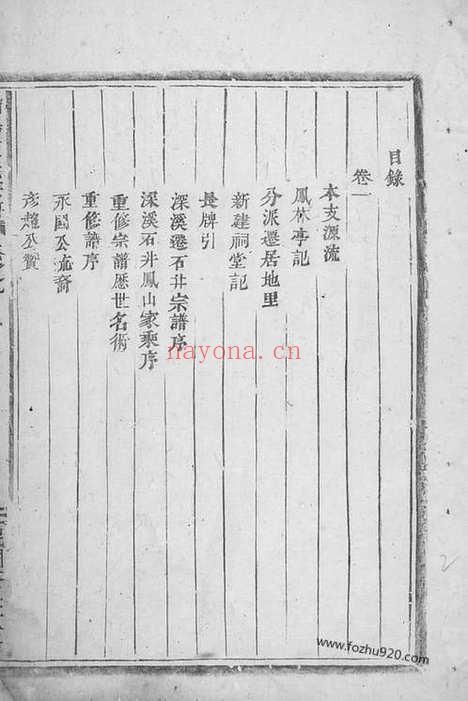 目錄
卷一
本支源流
鳳林亭記
分派遷居地里
新建祠堂記
長牌引
深溪遷石井宗譜序
深溪石井鳳山家乘序
重修宗譜歷世名術
重修譜序
永國公流裔
彥超公贊
nayona.cn
www.fozhu920.com
2